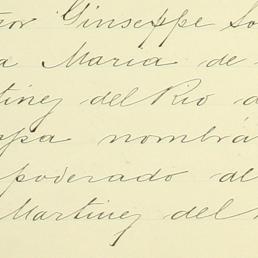 ñor Ginseppe So
a Maria de
tinez del Rio d
ppa nombrá
poderado de
Martinez del